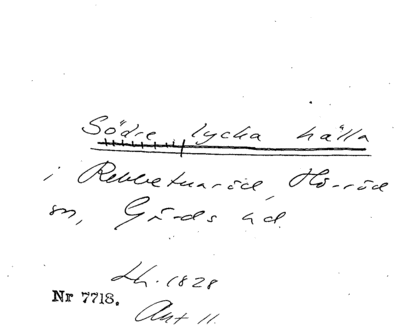 Södre lycka hälla
i Rebbetuaröd, Hö-röd
sn, Gärds hd.
Lh. 1828
Nr 7718.
Ant 11.